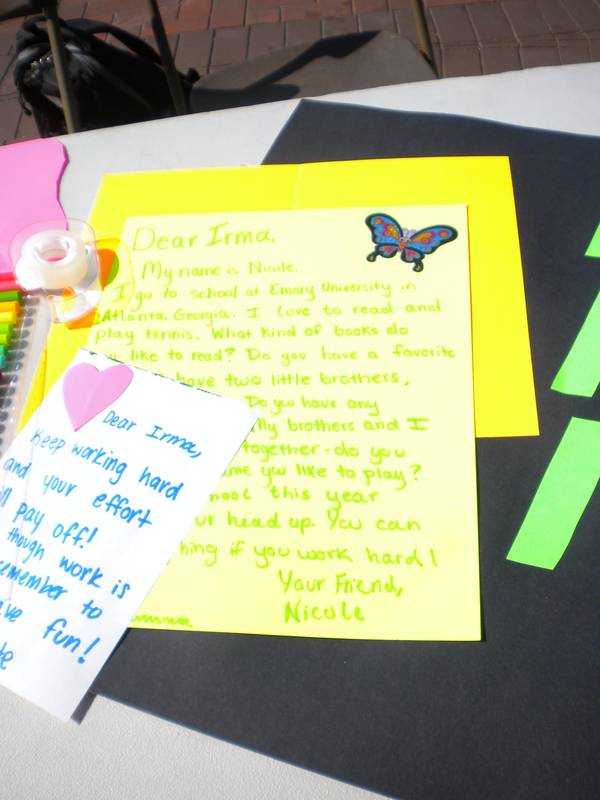 Dear Irma,
My name is Nicole.
I go to school at Emory University in
Atlanta, Georgia. I love to read and
play tennis. What kind of books do
like to read? Do you have a favorite
have two little brothers,
Do you have any
My brothers and I
together - do you
you like to play?
this year
your head up. You can
if you work hard!
Your Friend,
Nicole
Dear Irma,
Keep working hard
and your effort
pay off!
though work is
remember to
fun!